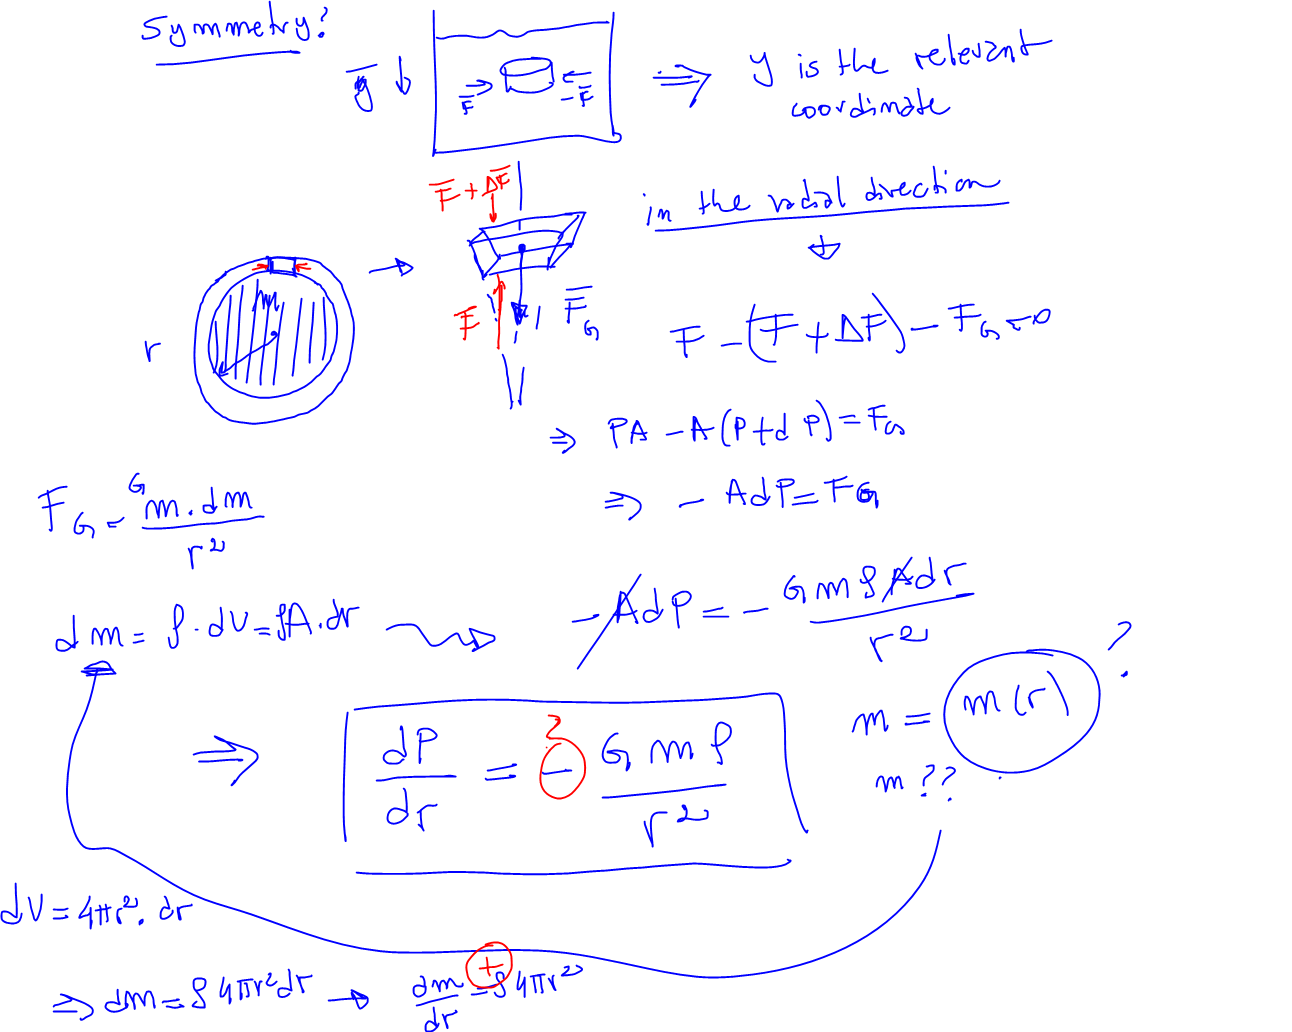 Symmetry?
g ↓
F → ← -F
⇒ y is the relevant
coordinate
F + ΔF
in the radial direction
↓
m
r
→
F
F_G
F - (F + ΔF) - F_G = 0
⇒ PA - A(P+dP) = F_G
⇒ - AdP = F_G
F_G = G m . dm / r²
dm = ρ · dV = ρA . dr
- AdP = - G m ρ A dr / r²
m = m(r) ?
m ??
⇒ dP/dr = - G m ρ / r²
?
dV = 4πr² . dr
⇒ dm = ρ 4πr² dr → dm/dr = + ρ 4πr²